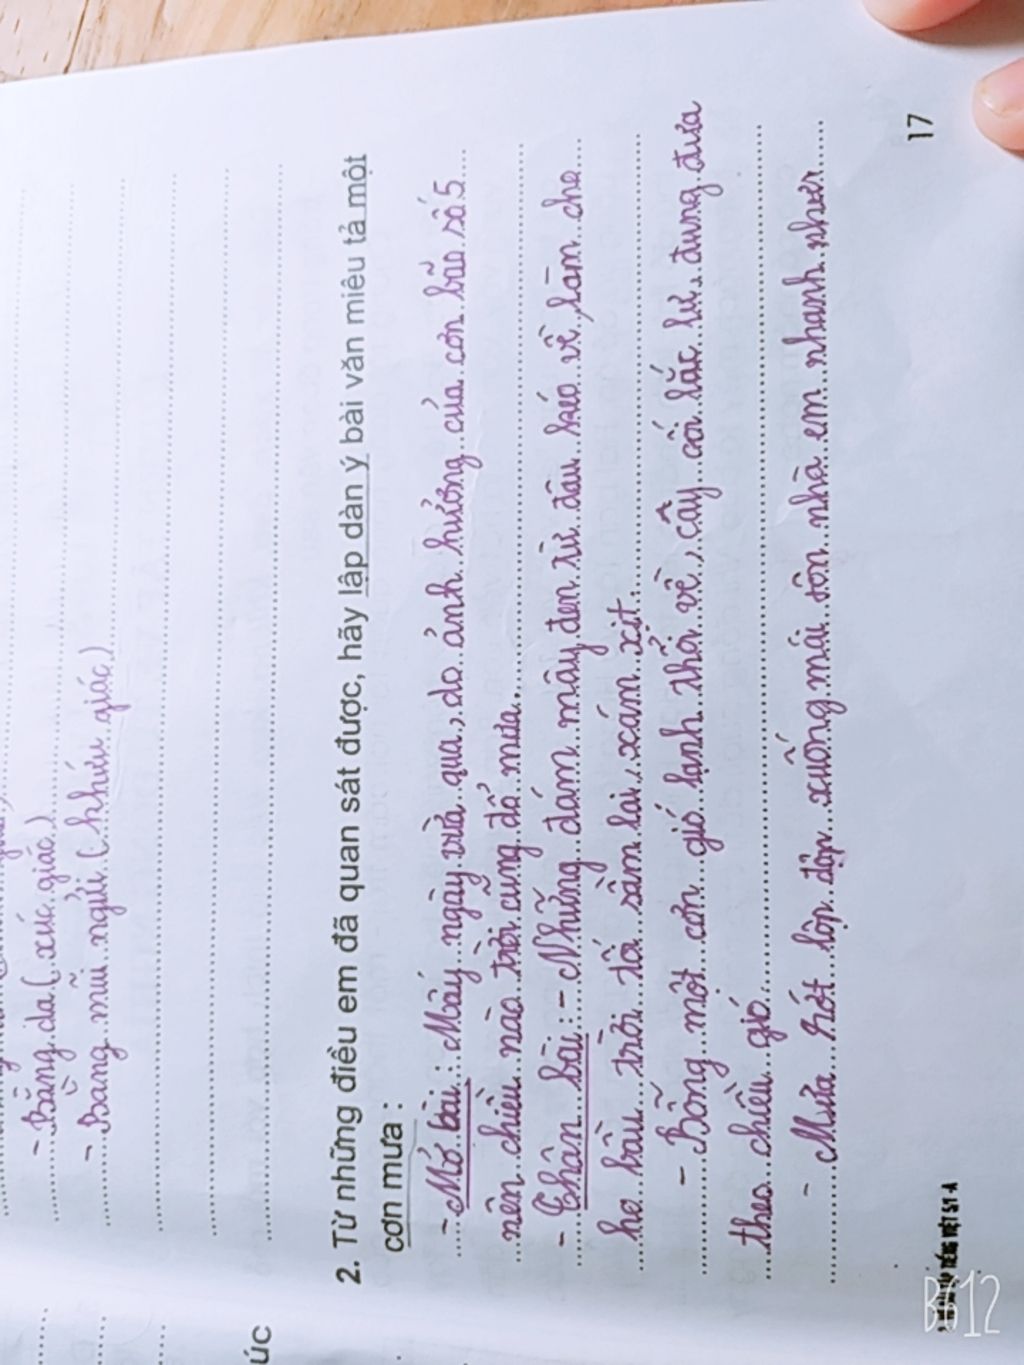 - Bằng da (xúc giác)
- Bằng mũi ngửi (khứu giác)
2. Từ những điều em đã quan sát được, hãy lập dàn ý bài văn miêu tả một
cơn mưa :
- Mở bài : Mấy ngày vừa qua, do ảnh hưởng của cơn bão số 5
nên chiều nào trời cũng đổ mưa.
- Thân bài : - Những đám mây đen từ đâu kéo về, làm che
he bầu trời tối sầm lại, xám xịt.
- Bỗng một cơn gió lạnh thổi về, cây cối lắc lư, đung đưa
theo chiều gió
- Mưa rớt lộp độp xuống mái tôn nhà em nhanh như
17
TIẾNG VIỆT 5/1-A
úc
B612